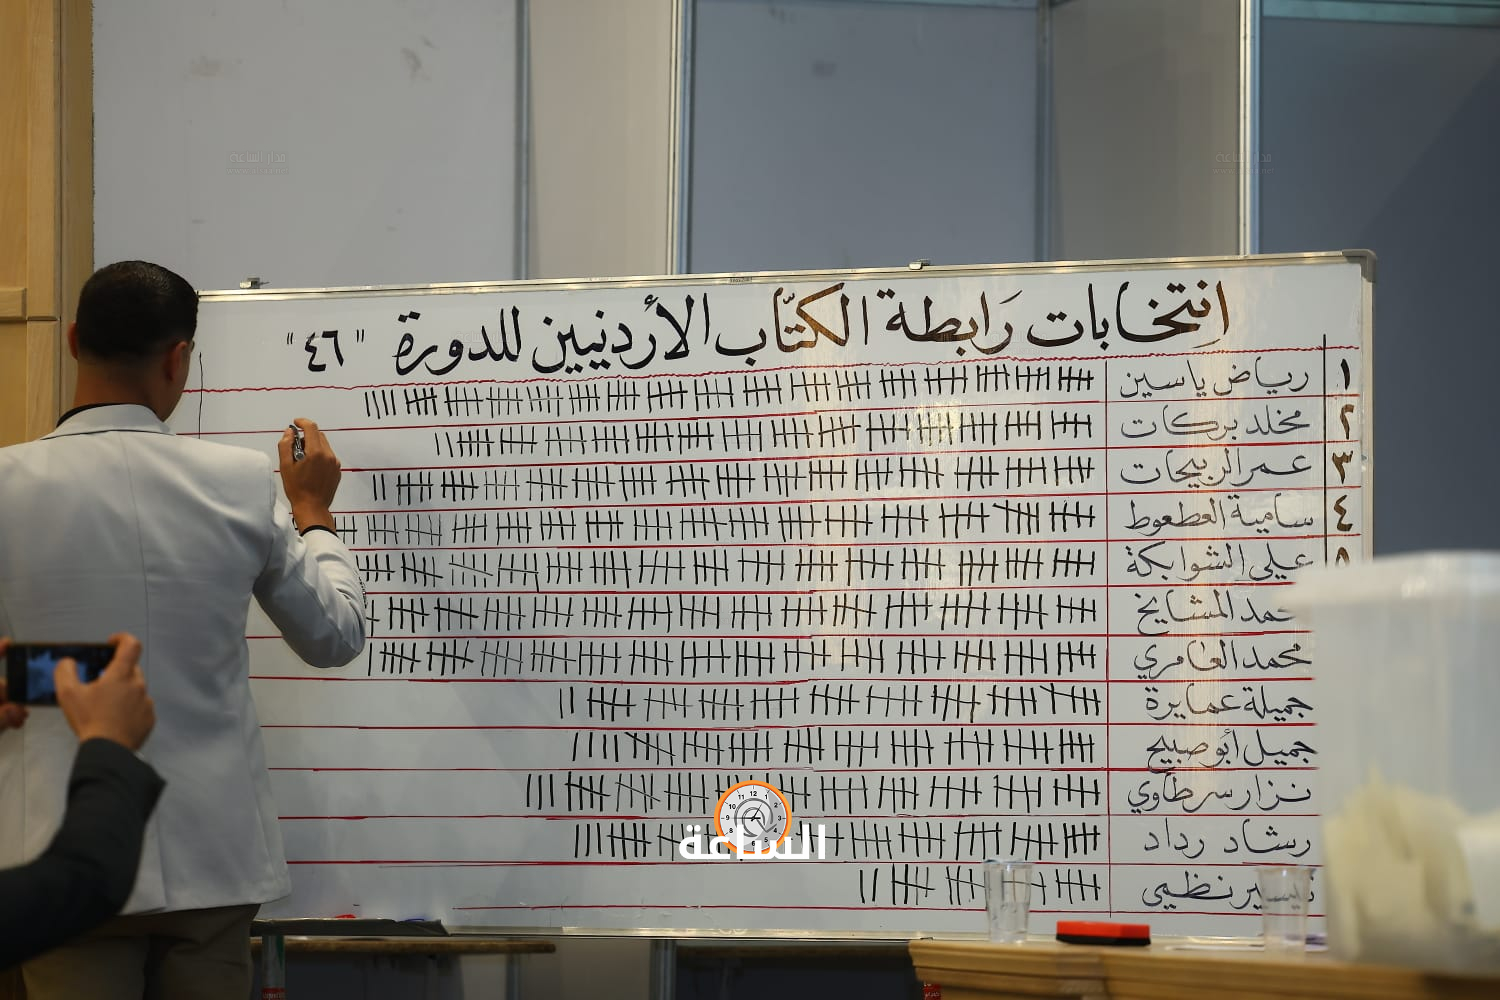 إنتخابات رَابطة الكتّاب الأردنيين للدورة "٤٦"
١ رياض ياسين
٢ مخلد بركات
٣ عمر الربيحات
٤ سامية العطعوط
٥ علي الشوابكة
حمد المشايخ
محمد العامري
جميلة عمايرة
جميل أبو صبيح
نزار سرطاوي
رشاد رداد
نظمي
الساعة